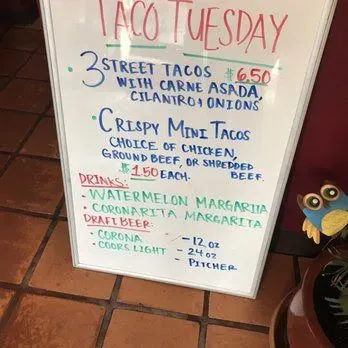 TACO TUESDAY
• 3 STREET TACOS $6.50
WITH CARNE ASADA,
CILANTRO & ONIONS
• CRISPY MINI TACOS
CHOICE OF CHICKEN,
GROUND BEEF, OR SHREDDED
BEEF.
$1.50 EACH.
DRINKS:
• WATERMELON MARGARITA
• CORONARITA MARGARITA
DRAFT BEER:
• CORONA - 12 OZ
• COORS LIGHT - 24 OZ
- PITCHER